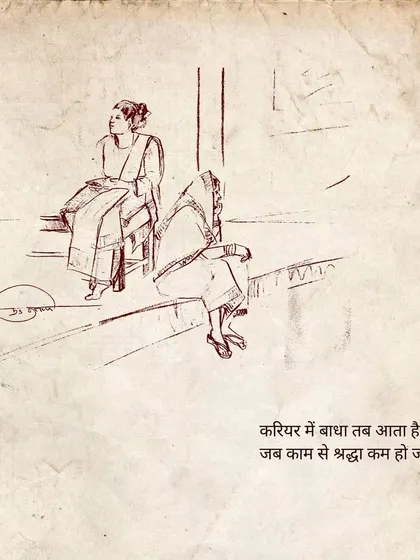 करियर में बाधा तब आता है
जब काम से श्रद्धा कम हो